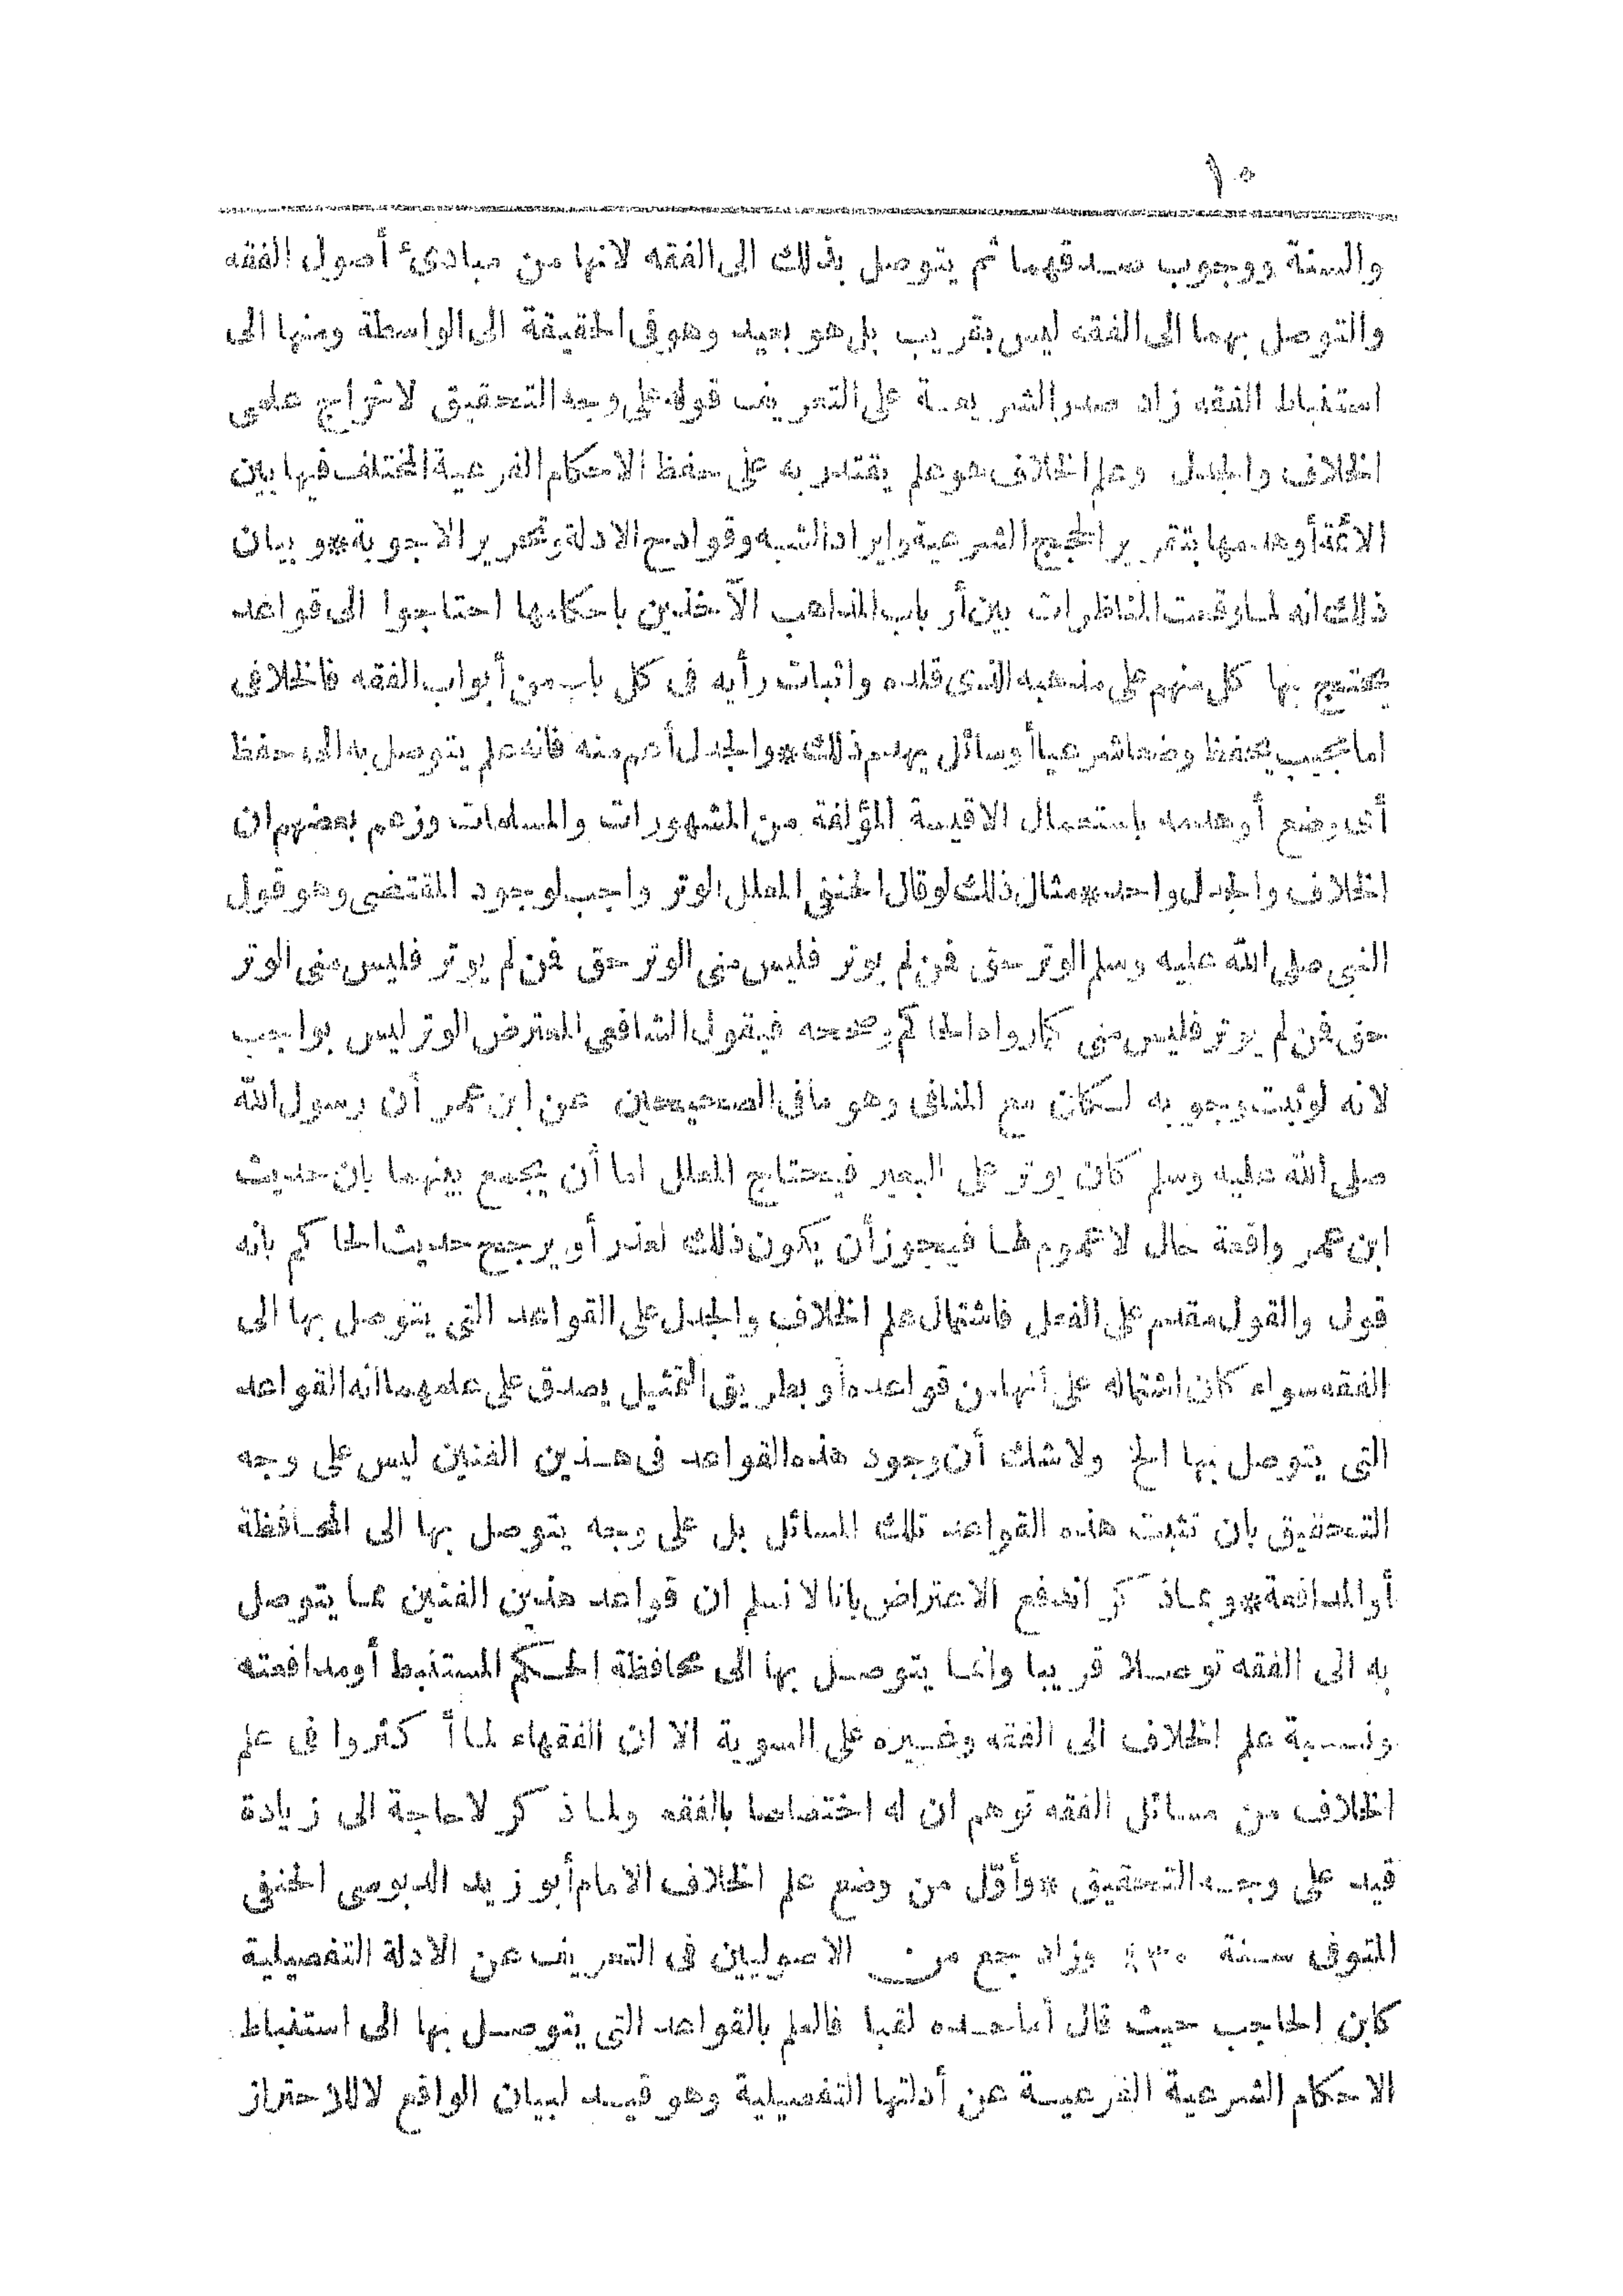 ١٠
والسنة ووجوب صدقهما ثم يتوصل بذلك الى الفقه لانها من مبادئ أصول الفقه
والتوصل بهما الى الفقه ليس بقريب بل هو بعيد وهو فى الحقيقة الى الواسطة ومنها الى
استنباط الفقه زاد صدر الشريعة على التعريف قوله على وجه التحقيق لاخراج علمى
الخلاف والجدل وعلم الخلاف هو علم يقتدر به على حفظ الاحكام الفرعية المختلف فيها بين
الأئمة أو هدمها بتقرير الحجج الشرعية وايراد الشبه وقوادح الادلة وتحرير الاجوبة * وبيان
ذلك انه لما وقعت المناظرات بين أرباب المذاهب الآخذين باحكامها احتاجوا الى قواعد
يحتج بها كل منهم على مذهبه الذى قلده واثبات رأيه فى كل باب من أبواب الفقه فالخلافى
اما مجيب يحفظ وضعا شرعيا أو سائل يهدم ذلك * والجدل أعم منه فانه علم يتوصل به الى حفظ
أى وضع أو هدمه باستعمال الاقيسة المؤلفة من المشهورات والمسلمات وزعم بعضهم ان
الخلاف والجدل واحد * مثال ذلك لو قال الحنفى المعلل الوتر واجب لوجود المقتضى وهو قول
النبى صلى الله عليه وسلم الوتر حق فمن لم يوتر فليس منى الوتر حق فمن لم يوتر فليس منى الوتر
حق فمن لم يوتر فليس منى كما رواه الحاكم وصححه فيقول الشافعى المعترض الوتر ليس بواجب
لانه لو ثبت وجوبه لكان مع المنافى وهو ما فى الصحيحين عن ابن عمر أن رسول الله
صلى الله عليه وسلم كان يوتر على البعير فيحتاج المعلل اما أن يجمع بينهما بان حديث
ابن عمر واقعة حال لا عموم لها فيجوز أن يكون ذلك لعذر أو يرجح حديث الحاكم بانه
قول والقول مقدم على الفعل فاشتمال علم الخلاف والجدل على القواعد التى يتوصل بها الى
الفقه سواء كان اشتماله على أنها من قواعده أو بطريق التمثيل يصدق على علمهما انه القواعد
التى يتوصل بها الخ ولا شك أن وجود هذه القواعد فى هذين الفنين ليس على وجه
التحقيق بان تثبت هذه القواعد تلك المسائل بل على وجه يتوصل بها الى المحافظة
أو المدافعة * وبما ذكر اندفع الاعتراض بانا لا نسلم ان قواعد هذين الفنين مما يتوصل
به الى الفقه توصلا قريبا وانما يتوصل بها الى محافظة الحكم المستنبط أو مدافعته
ونسبة علم الخلاف الى الفقه وغيره على السوية الا ان الفقهاء لما أكثروا فى علم
الخلاف من مسائل الفقه توهم ان له اختصاصا بالفقه ولما ذكر لا حاجة الى زيادة
قيد على وجه التحقيق * وأوّل من وضع علم الخلاف الامام أبو زيد الدبوسى الحنفى
المتوفى سنة ٤٣٠ وزاد جمع من الاصوليين فى التعريف عن الادلة التفصيلية
كابن الحاجب حيث قال أما حده لقبا فالعلم بالقواعد التى يتوصل بها الى استنباط
الاحكام الشرعية الفرعية عن أدلتها التفصيلية وهو قيد لبيان الواقع لا للاحتراز